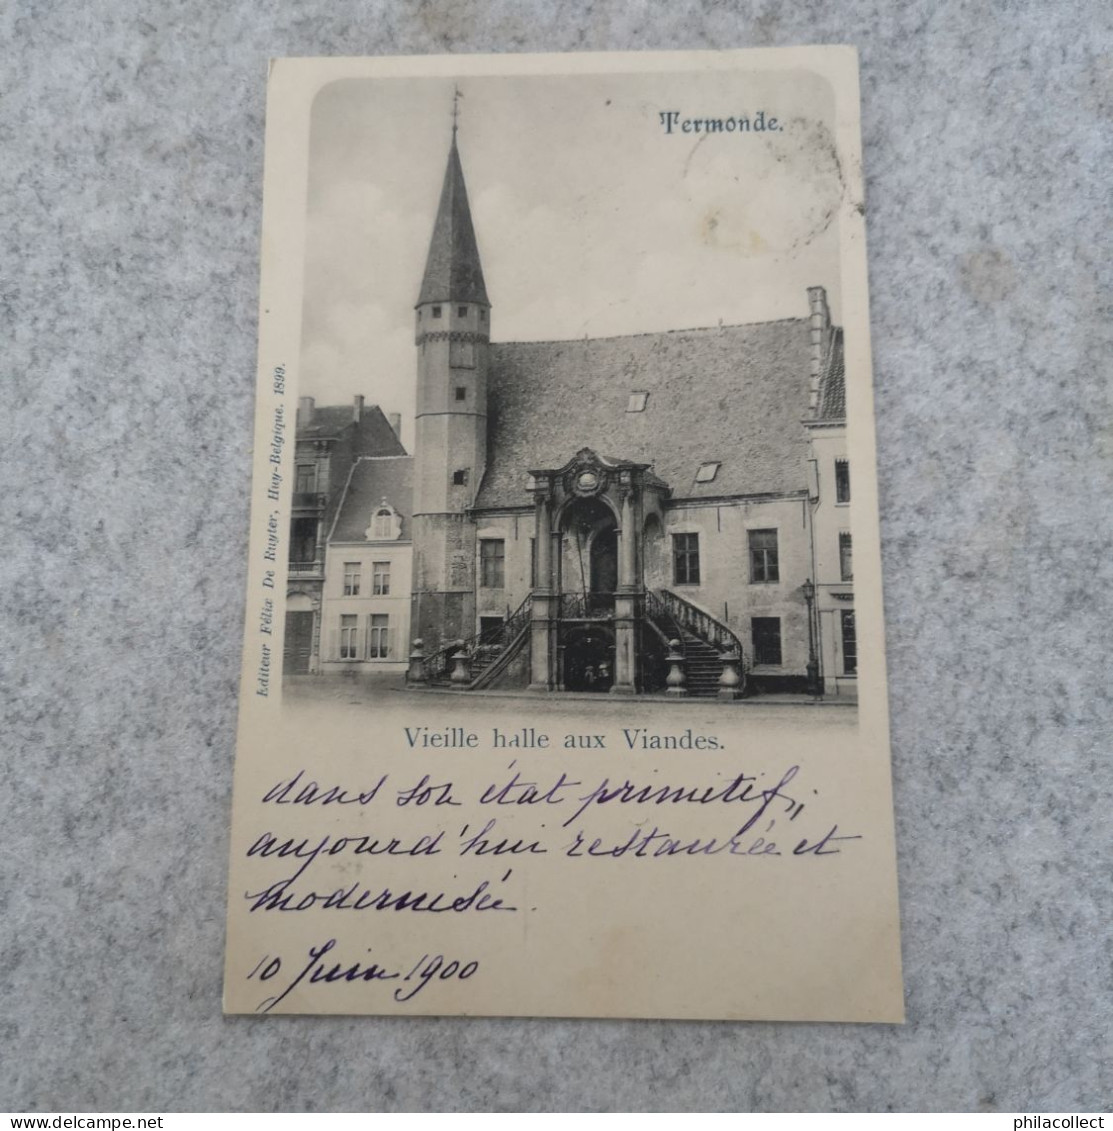 Termonde.
Editeur Félix De Ruyter, Huy-Belgique. 1899.
Vieille halle aux Viandes.
dans son état primitif,
aujourd'hui restaurée et
modernisée.
10 Juin 1900
www.delcampe.net
philacollect